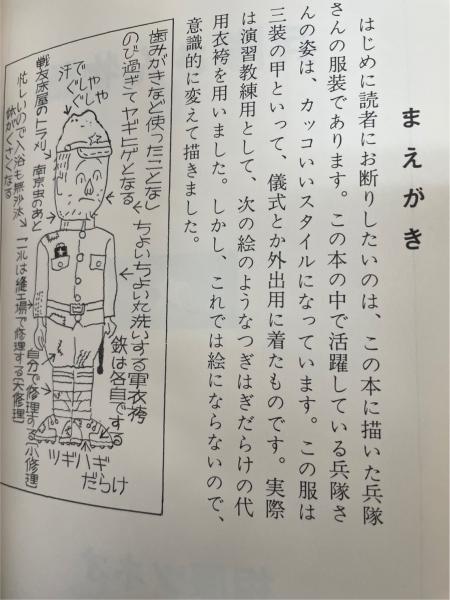 まえがき
はじめに読者にお断りしたいのは、この本に描いた兵隊
さんの服装であります。この本の中で活躍している兵隊さ
んの姿は、カッコいいスタイルになっています。この服は
三装の甲といって、儀式とか外出用に着たものです。実際
は演習教練用として、次の絵のようなつぎはぎだらけの代
用衣袴を用いました。しかし、これでは絵にならないので、
意識的に変えて描きました。
歯みがきなど使ったことなし
のび過ぎてヤギヒゲとなる
汗でぐしゃぐしゃ
戦友床屋のトラメリ
南京虫のあと
忙しいので入浴も無沙汰
体がくさくなる
ちょいちょい丸洗いする軍衣袴
鋲は各自でする
自分で修理する(小修理)
縫工場で修理する(大修理)
ツギハギ
だらけ